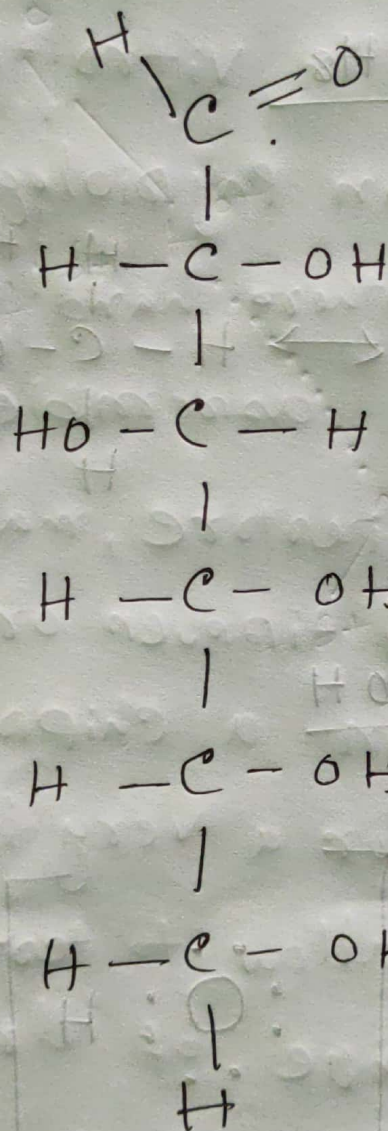 H
C = O
|
H - C - OH
|
HO - C - H
|
H - C - OH
|
H - C - OH
|
H - C - OH
|
H